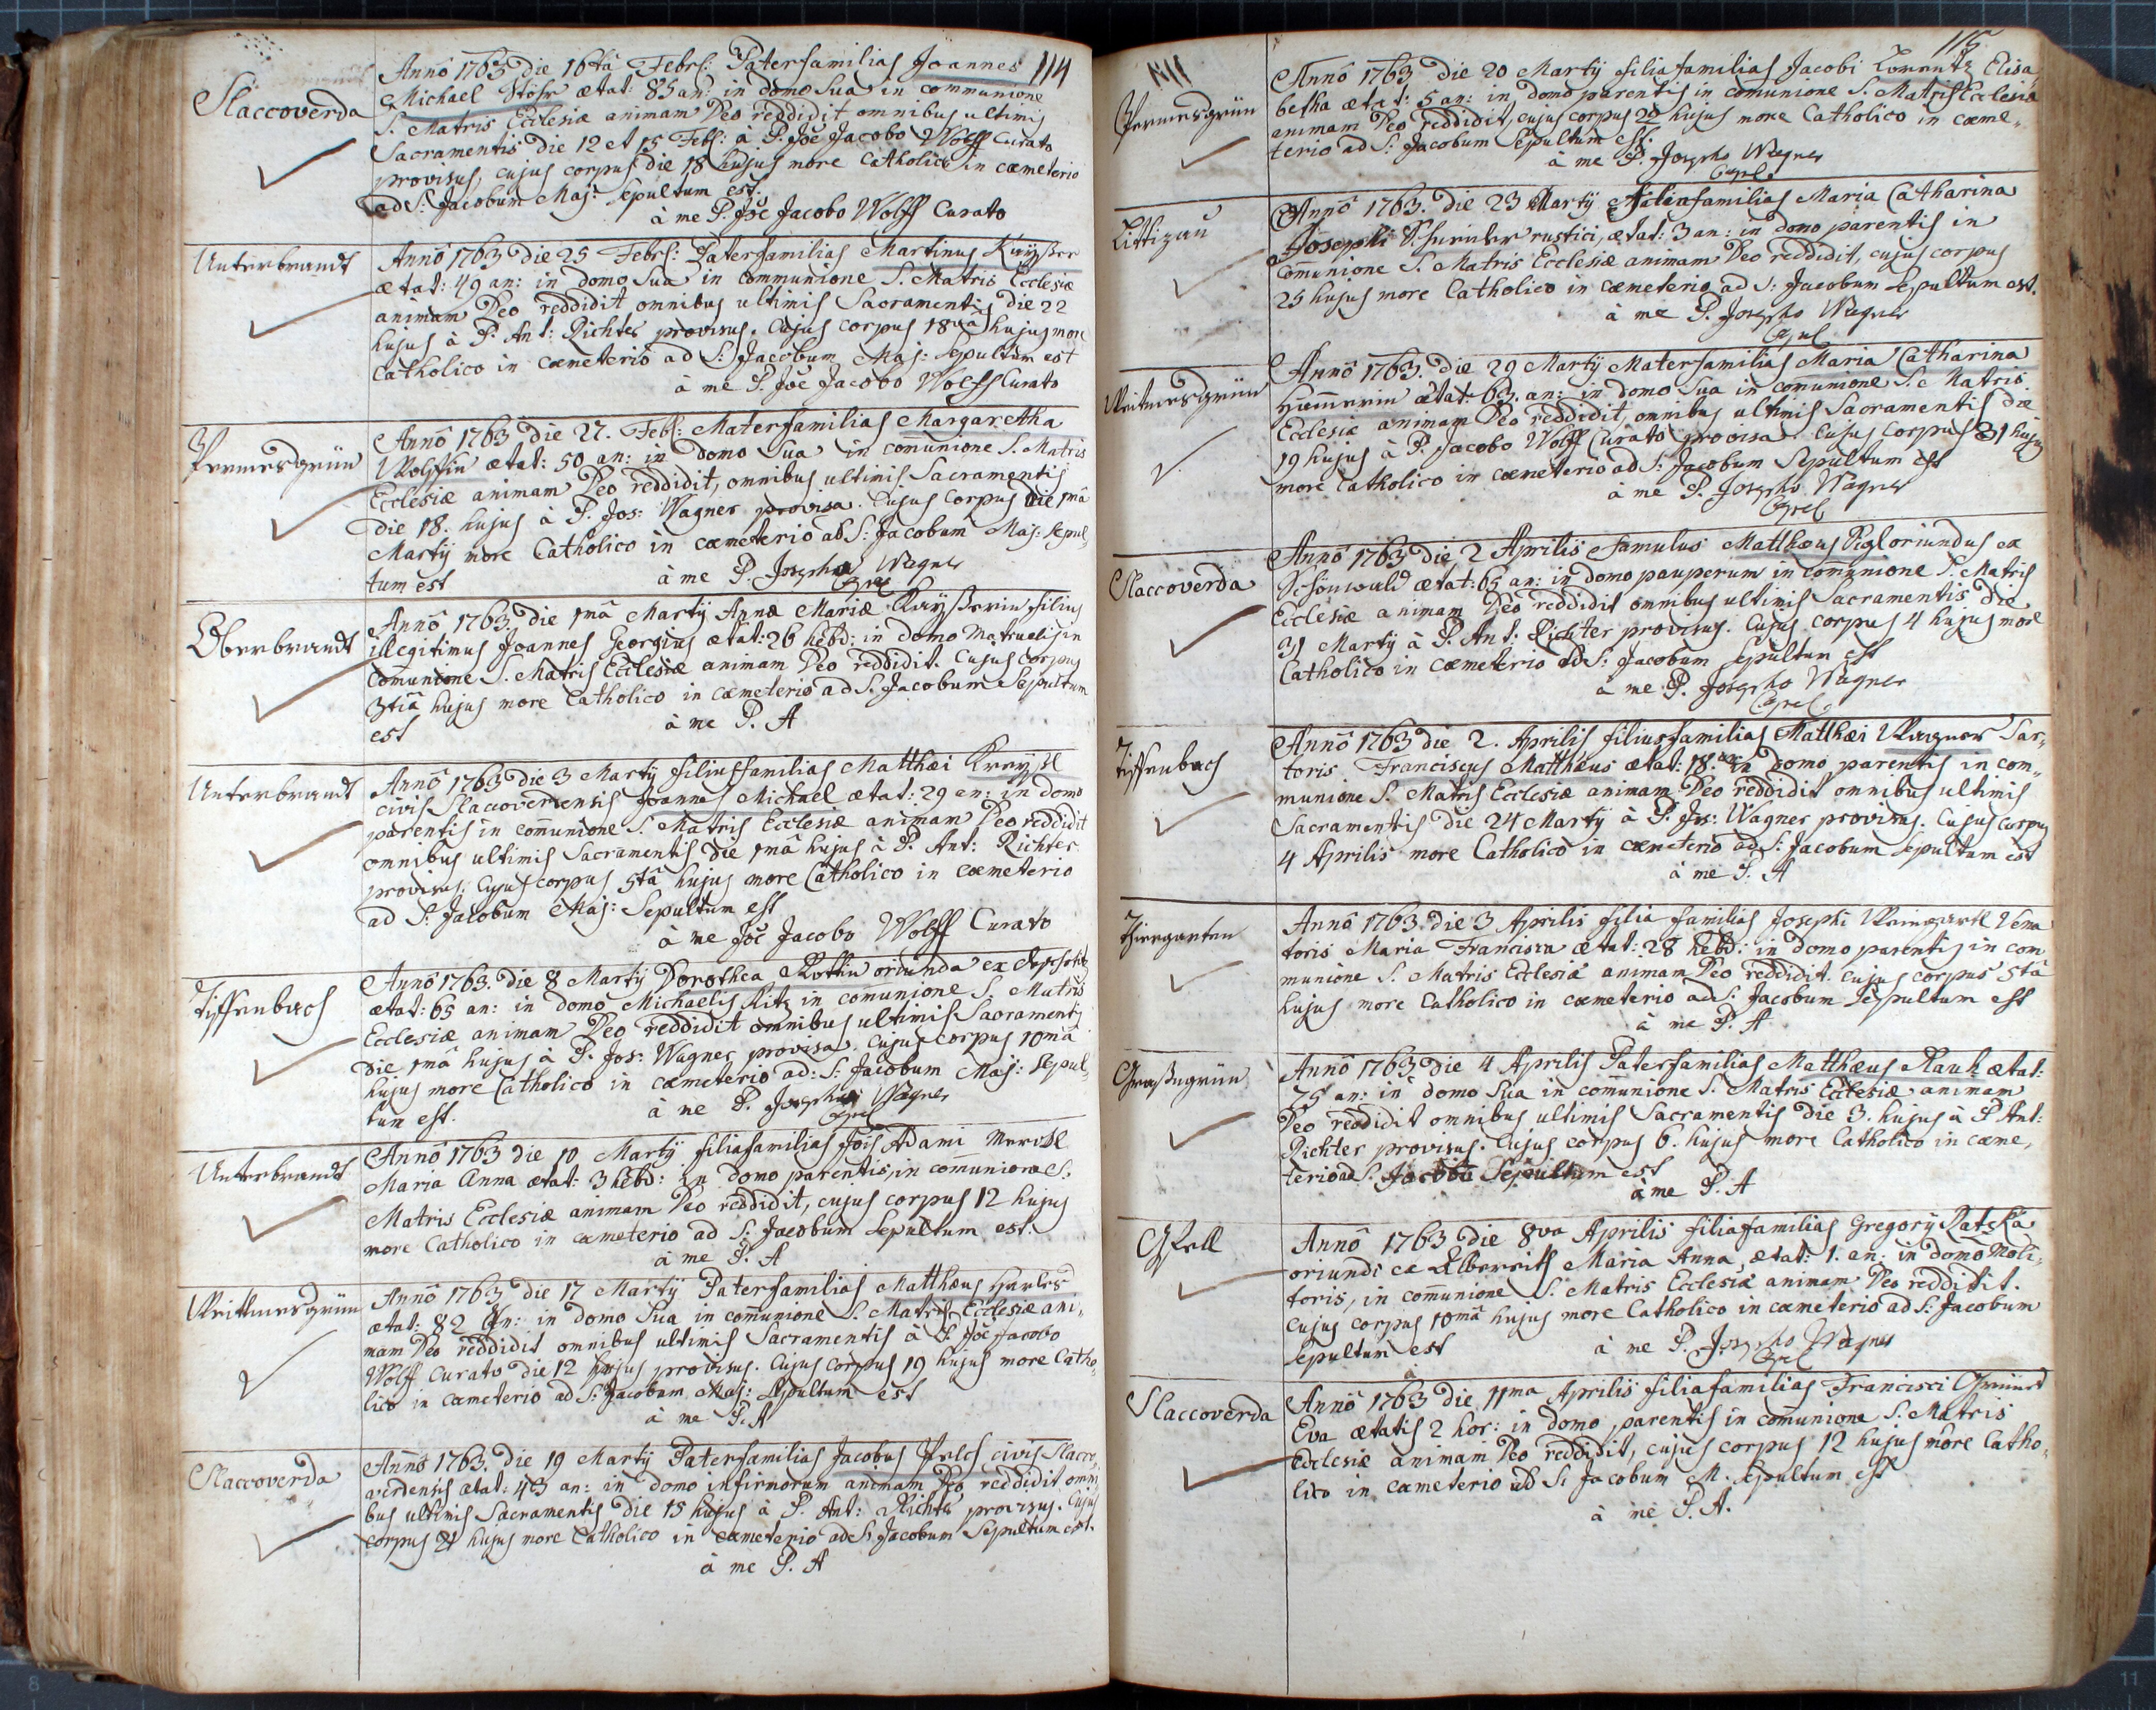 114
Slaccoverda
Anno 1763 die 16ta Febr: Paterfamilias Joannes
Michael Stöhr ætat: 85 an: in domo Sua in communione
S. Matris Ecclesiæ animam Deo reddidit omnibus ultimis
Sacramentis die 12 et 15 Feb: à P. Joe Jacobo Wolff Curato
provisus, cujus corpus die 18 hujus more Catholico in cæmeterio
ad S: Jacobum Maj: Sepultum est.
à me P. Joe Jacobo Wolff Curato
Unterbrandt
Anno 1763 die 25 Febr: Paterfamilias Martinus Kayßer
ætat: 49 an: in domo Sua in Communione S. Matris Ecclesiæ
animam Deo reddidit omnibus ultimis Sacramentis die 22
hujus à P. Ant: Richter provisus. Cujus corpus hujus more
Catholico in cæmeterio ad S: Jacobum Maj: Sepultum est
à me P. Joe Jacobo Wolff Curato
Permesgrün
Anno 1763 die 27. Feb: Materfamilias Margaretha
Wolffin ætat: 50 an: in domo Sua in comunione S. Matris
Ecclesiæ animam Deo reddidit, omnibus ultimis Sacramentis
die 18. hujus à P. Jos: Wagner provisa. Cujus Corpus die 1ma
Martÿ more Catholico in cæmeterio ad S: Jacobum Maj: Sepul=
tum est
à me P. Josepho Wagner
Oberbrandt
Anno 1763. die 1ma Martÿ Annæ Mariæ Kayßerin filius
illegitimus Joannes Georgius ætat: 26 hebd: in domo Matruelis in
Comunione S. Matris Ecclesiæ animam Deo reddidit. Cujus Corpus
3tia hujus more Catholico in cæmeterio ad S. Jacobum Sepultum
est
à me P. A
Unterbrandt
Anno 1763 die 3 Martÿ filiusfamilias Matthæi Kreyßl
civis Slaccoverdensis Joannes Michael ætat: 29 an: in domo
parentis in comunione S. Matris Ecclesiæ animam Deo reddidit
omnibus ultimis Sacramentis die 1ma hujus à P. Ant: Richter
provisus. Cujus corpus 5ta hujus more Catholico in cæmeterio
ad S: Jacobum Maj: Sepultum est
à me Joe Jacobo Wolff Curato
Tiffenbach
Anno 1763. die 8 Martÿ Dorothea Rottin oriunda ex
ætat: 65 an: in domo Michaelis Ritz in comunione S. Matris
Ecclesiæ animam Deo reddidit omnibus ultimis Sacramentis
die 1ma hujus à P. Jos: Wagner provisa. Cujus corpus 10ma
hujus more Catholico in cæmeterio ad: S: Jacobum Maj: Sepul=
tum est.
à me P. Josepho Wagner
Unterbrandt
Anno 1763 die 10 Martÿ filiafamilias Jois Adami
Maria Anna ætat: 3 hebd: in domo parentis, in comunione S.
Matris Ecclesiæ animam Deo reddidit, cujus corpus 12 hujus
more Catholico in cæmeterio ad S: Jacobum Sepultum est.
à me P. A
Weitmesgrün
Anno 1763 die 17 Martÿ Paterfamilias Matthæus Harles
ætat: 82 an: in domo Sua in comunione S. Matris Ecclesiæ ani=
mam Deo reddidit omnibus ultimis Sacramentis à P. Joe Jacobo
Wolff Curato die 12 hujus provisus. Cujus corpus 19 hujus more Catho=
lico in cæmeterio ad S: Jacobum Maj: Sepultum est
à me P. A
Slaccoverda
Anno 1763. die 19 Martÿ Paterfamilias Jacobus Pelch civis Slacco=
verdensis ætat: 43 an: in domo infirmorum animam Deo reddidit omni
bus ultimis Sacramentis die 15 hujus à P. Ant: Richter provisus. Cujus
corpus 21 hujus more Catholico in cæmeterio ad S: Jacobum Sepultum est.
à me P. A
115
Permesgrün
Anno 1763 die 20 Martÿ filiafamilias Jacobi Lorentz Elisa=
betha ætat: 5 an: in domo parentis in comunione S. Matris Ecclesiæ
animam Deo reddidit, cujus corpus hujus more Catholico in cæme=
terio ad S: Jacobum Sepultum est.
à me P. Josepho Wagner
Littigau
Anno 1763. die 23 Martÿ filiafamilias Maria Catharina
Josephi rustici, ætat: 3 an: in domo parentis in
Comunione S. Matris Ecclesiæ animam Deo reddidit, cujus corpus
25 hujus more Catholico in cæmeterio ad S: Jacobum Sepultum est.
à me P. Josepho Wagner
Weitmesgrün
Anno 1763. die 29 Martÿ Materfamilias Maria Catharina
ætat: 63. an: in domo Sua in comunione S. Matris
Ecclesiæ animam Deo reddidit, omnibus ultimis Sacramentis die
19 hujus à P. Jacobo Wolff Curato provisa. Cujus Corpus 31 hujus
more Catholico in cæmeterio ad S: Jacobum Sepultum est
à me P. Josepho Wagner
Slaccoverda
Anno 1763 die 2 Aprilis famulus Matthæus Pigl oriundus ex
Schönwald ætat: 65 an: in domo pauperum in comunione S. Matris
Ecclesiæ animam Deo reddidit omnibus ultimis Sacramentis die
31 Martÿ à P. Ant: Richter provisus. Cujus corpus 4 hujus more
Catholico in cæmeterio ad S: Jacobum Sepultum est
à me P. Josepho Wagner
Tiffenbach
Anno 1763 die 2. Aprilis filiusfamilias Matthæi Wagner Sar=
toris Franciscus Matthæus ætat: 18. an: in domo parentis in com=
munione S. Matris Ecclesiæ animam Deo reddidit omnibus ultimis
Sacramentis die 24 Martÿ à P. Jos: Wagner provisus. Cujus corpus
4 Aprilis more Catholico in cæmeterio ad S: Jacobum Sepultum est
à me P. A
Thiergarten
Anno 1763 die 3 Aprilis filia familias Josephi Weingartl Vena
toris Maria Francisca ætat: 28 hebd: in domo parentis in com
munione S. Matris Ecclesiæ animam Deo reddidit. Cujus corpus 5ta
hujus more Catholico in cæmeterio ad S: Jacobum Sepultum est
à me P. A
Graßngrün
Anno 1763 die 4 Aprilis Paterfamilias Matthæus Rauh ætat:
75 an: in domo Sua in comunione S. Matris Ecclesiæ animam
Deo reddidit omnibus ultimis Sacramentis die 3. hujus à P Ant:
Richter provisus. Cujus corpus 6. hujus more Catholico in cæme=
terio ad S. Sepultum est
à me P. A
Gfell
Anno 1763 die 8va Aprilis filiafamilias Gregorÿ Ratska
oriundi ex Albereith Maria Anna, ætat: 1. an: in domo Moli=
toris, in comunione S. Matris Ecclesiæ animam Deo reddidit.
Cujus corpus 10ma hujus more Catholico in cæmeterio ad S: Jacobum
Sepultum est
à me P. Josepho Wagner
Slaccoverda
Anno 1763 die 11ma Aprilis filiafamilias Francisci
Eva ætatis 2 hor: in domo parentis in comunione S. Matris
Ecclesiæ animam Deo reddidit, cujus corpus 12 hujus more Catho=
lico in cæmeterio ad S: Jacobum M. Sepultum est
à me P. A.
8
11